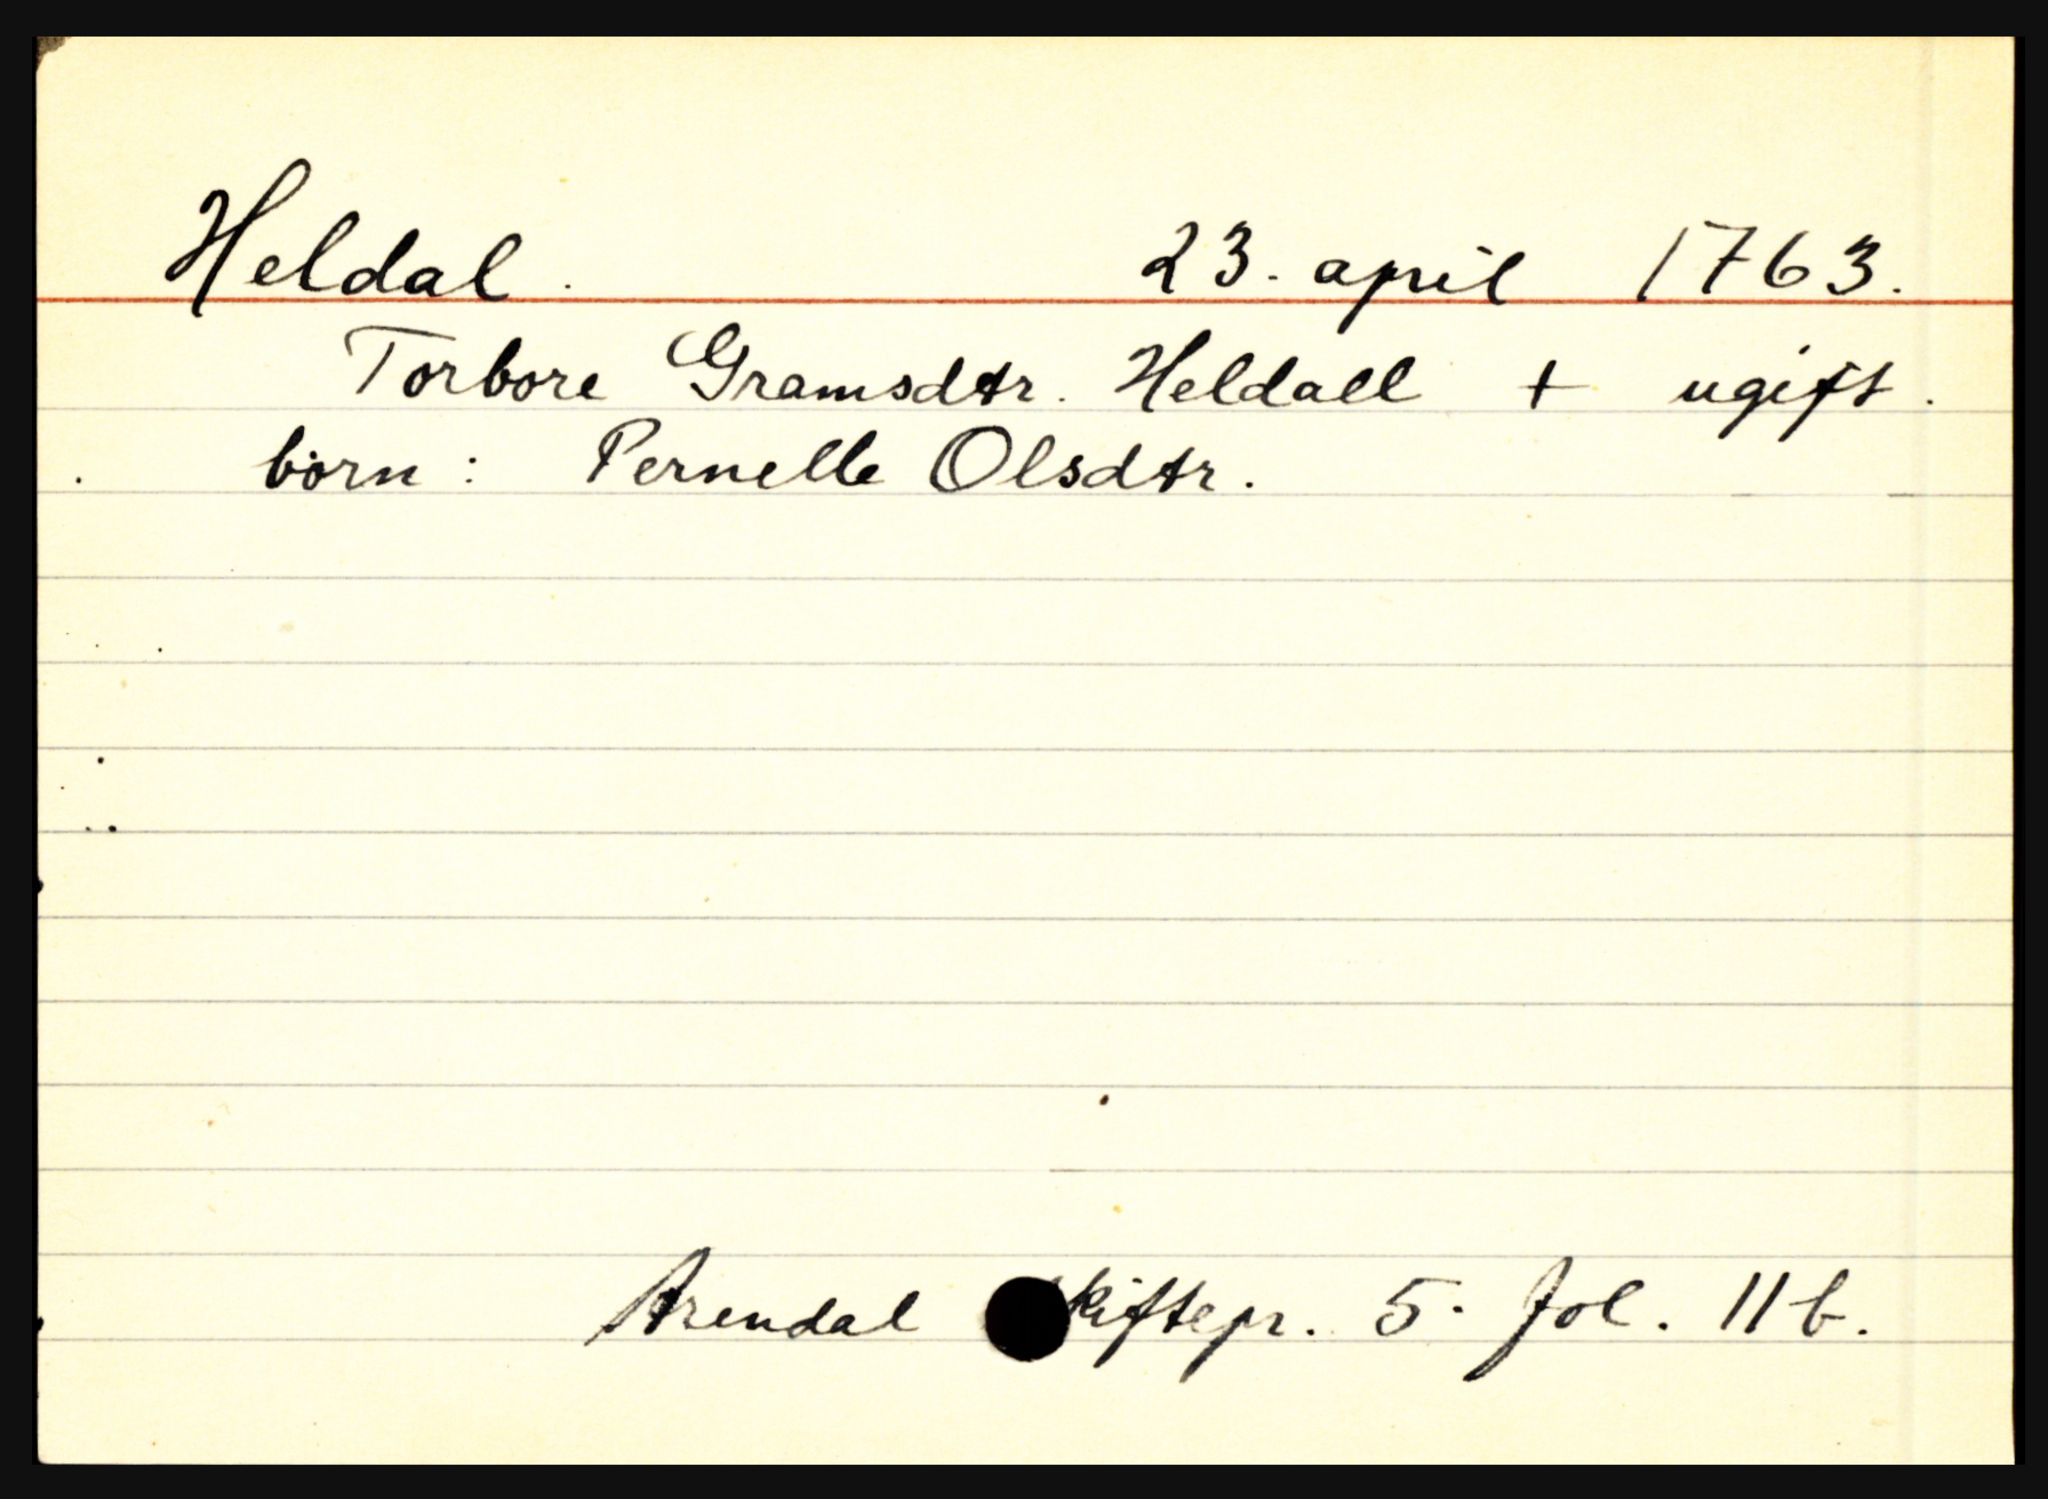 Heldal. 23. april 1763.
Torbore Gramsdtr. Heldall + ugift.
börn: Pernelle Olsdtr.
Arendal kiftepr. 5. fol. 11b.